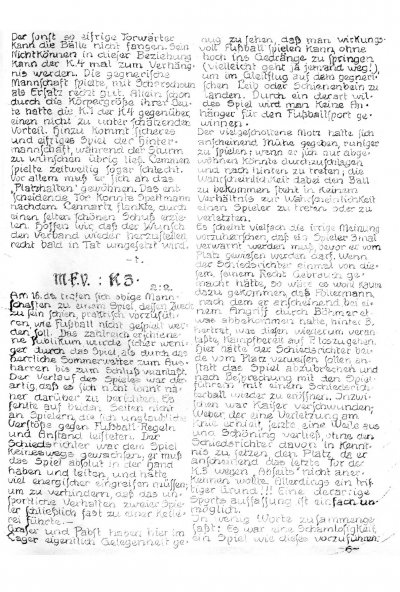 Der sonst so eifrige Torwärter
kann die Bälle nicht fangen. Sein
Nichtkönnen in dieser Beziehung
kann der K.4 mal zum Verhäng-
nis werden. Die gegnerische
Mannschaft spielte, mit
als Ersatz recht gut. Allein schon
durch die Körpergröße ihrer Leu-
te hatte die K.1 der K.4 gegenüber
einen nicht zu unterschätzenden
Vorteil. Hinzu kommt sicheres
und eifriges Spiel der Hinter-
mannschaft, während der Sturm
zu wünschen übrig ließ. Clemmen
spielte zeitweilig sogar schlecht.
Vor allem muß er sich an das
"Platzhalten" gewöhnen. Das ent-
scheidende Tor konnte Spettmann
nachdem Gerhartz flankte, durch
einen selten schönen Schuß erzie-
len. Hoffen wir daß der Wunsch
den Verband wieder herzustellen
recht bald in Tat umgesetzt wird.
M.F.V. : K 3.
2:2.
Am 16. ds. trafen sich obige Mann-
schaften zu einem Spiel, dessen Zweck
zu sein schien, praktisch vorzufüh-
ren, wie Fußball nicht gespielt wer-
den soll. Das zahlreich erschiene-
ne Publikum wurde sicher weni-
ger durch das Spiel, als durch das
herrliche Sommerwetter zum Aus-
harren bis zum Schluß veranlaßt.
Der Verlauf des Spieles war der-
artig, daß es sich nicht lohnt nä-
her darüber zu berichten. Es
fehlte auf beiden Seiten nicht
an Spielern die sich unglaubliche
Verstöße gegen Fußball-Regeln
und Anstand leisteten. Der
Schiedsrichter war dem Spiel
keineswegs gewachsen, er muß
das Spiel absolut in der Hand
haben und leiten, und hätte
viel energischer eingreifen müssen,
um zu verhindern, daß das un-
sportliche Verhalten zweier Spie-
ler schließlich fast zu einer Keile-
rei führte. —
Gräser und Pabst haben hier im
Lager eigentlich Gelegenheit ge-
nug zu sehen, daß man wirkungs-
voll Fußball spielen kann, ohne
hoch ins Gedränge zu springen
(vielleicht geht ja jemand weg!)
um im Gleitflug auf dem gegneri-
schen Leib oder Schienenbein zu
landen. Durch ein derart wil-
des Spiel wird man keine An-
hänger für den Fußballsport ge-
winnen.
Der vielgescholtene Motz hatte sich
anscheinend Mühe gegeben, ruhiger
zu spielen; wenn er sich auf abge-
wöhnen könnte durchzuschlagen
und nach hinten zu treten; die
Wahrscheinlichkeit dabei den Ball
zu bekommen steht in keinem
Verhältnis zur Wahrscheinlichkeit
einen Spieler zu treten oder zu
verletzten.
Es scheint vielfach die irrige Meinung
vorzuherrschen, daß ein Spieler 3 mal
verwarnt werden muß, bevor er vom
Platz gewiesen werden darf. Wenn
der Schiedsrichter einmal von die-
sem, seinem Recht Gebrauch ge-
macht hätte, so wäre es wohl kaum
dazu gekommen, daß Pollermann,
nach dem er anscheinend bei ei-
nem Angriff durch Böhmer et-
was abbekommen hatte, hinter B.
herlief, was diesen wiederum veran-
laßte, kampfbereit auf P. loszugehen.
Hier hätte der Schiedsrichter beide
vom Platz verweisen sollen an-
statt das Spiel abzubrechen und
nach Besprechung mit den Spiel-
führern mit einem Schiedsrich-
terball wieder zu eröffnen. Inzwi-
schen war Kaiser verschwunden,
Weber der eine Verletzung am
Knie erhielt, setzte eine Weile aus
und Schöning verließ, ohne den
Schiedsrichter davon in Kennt-
nis zu setzen, den Platz, da er
anscheinend das letzte Tor der
K.3 wegen "Abseits" nicht aner-
kennen wollte. Allerdings ein trif-
tiger Grund!!! Eine derartige
Sportsauffassung ist einfach un-
möglich.
In wenig Worte zusammenge-
faßt: Es war eine Schamlosigkeit
ein Spiel wie dieses vorzuführen.
-6-